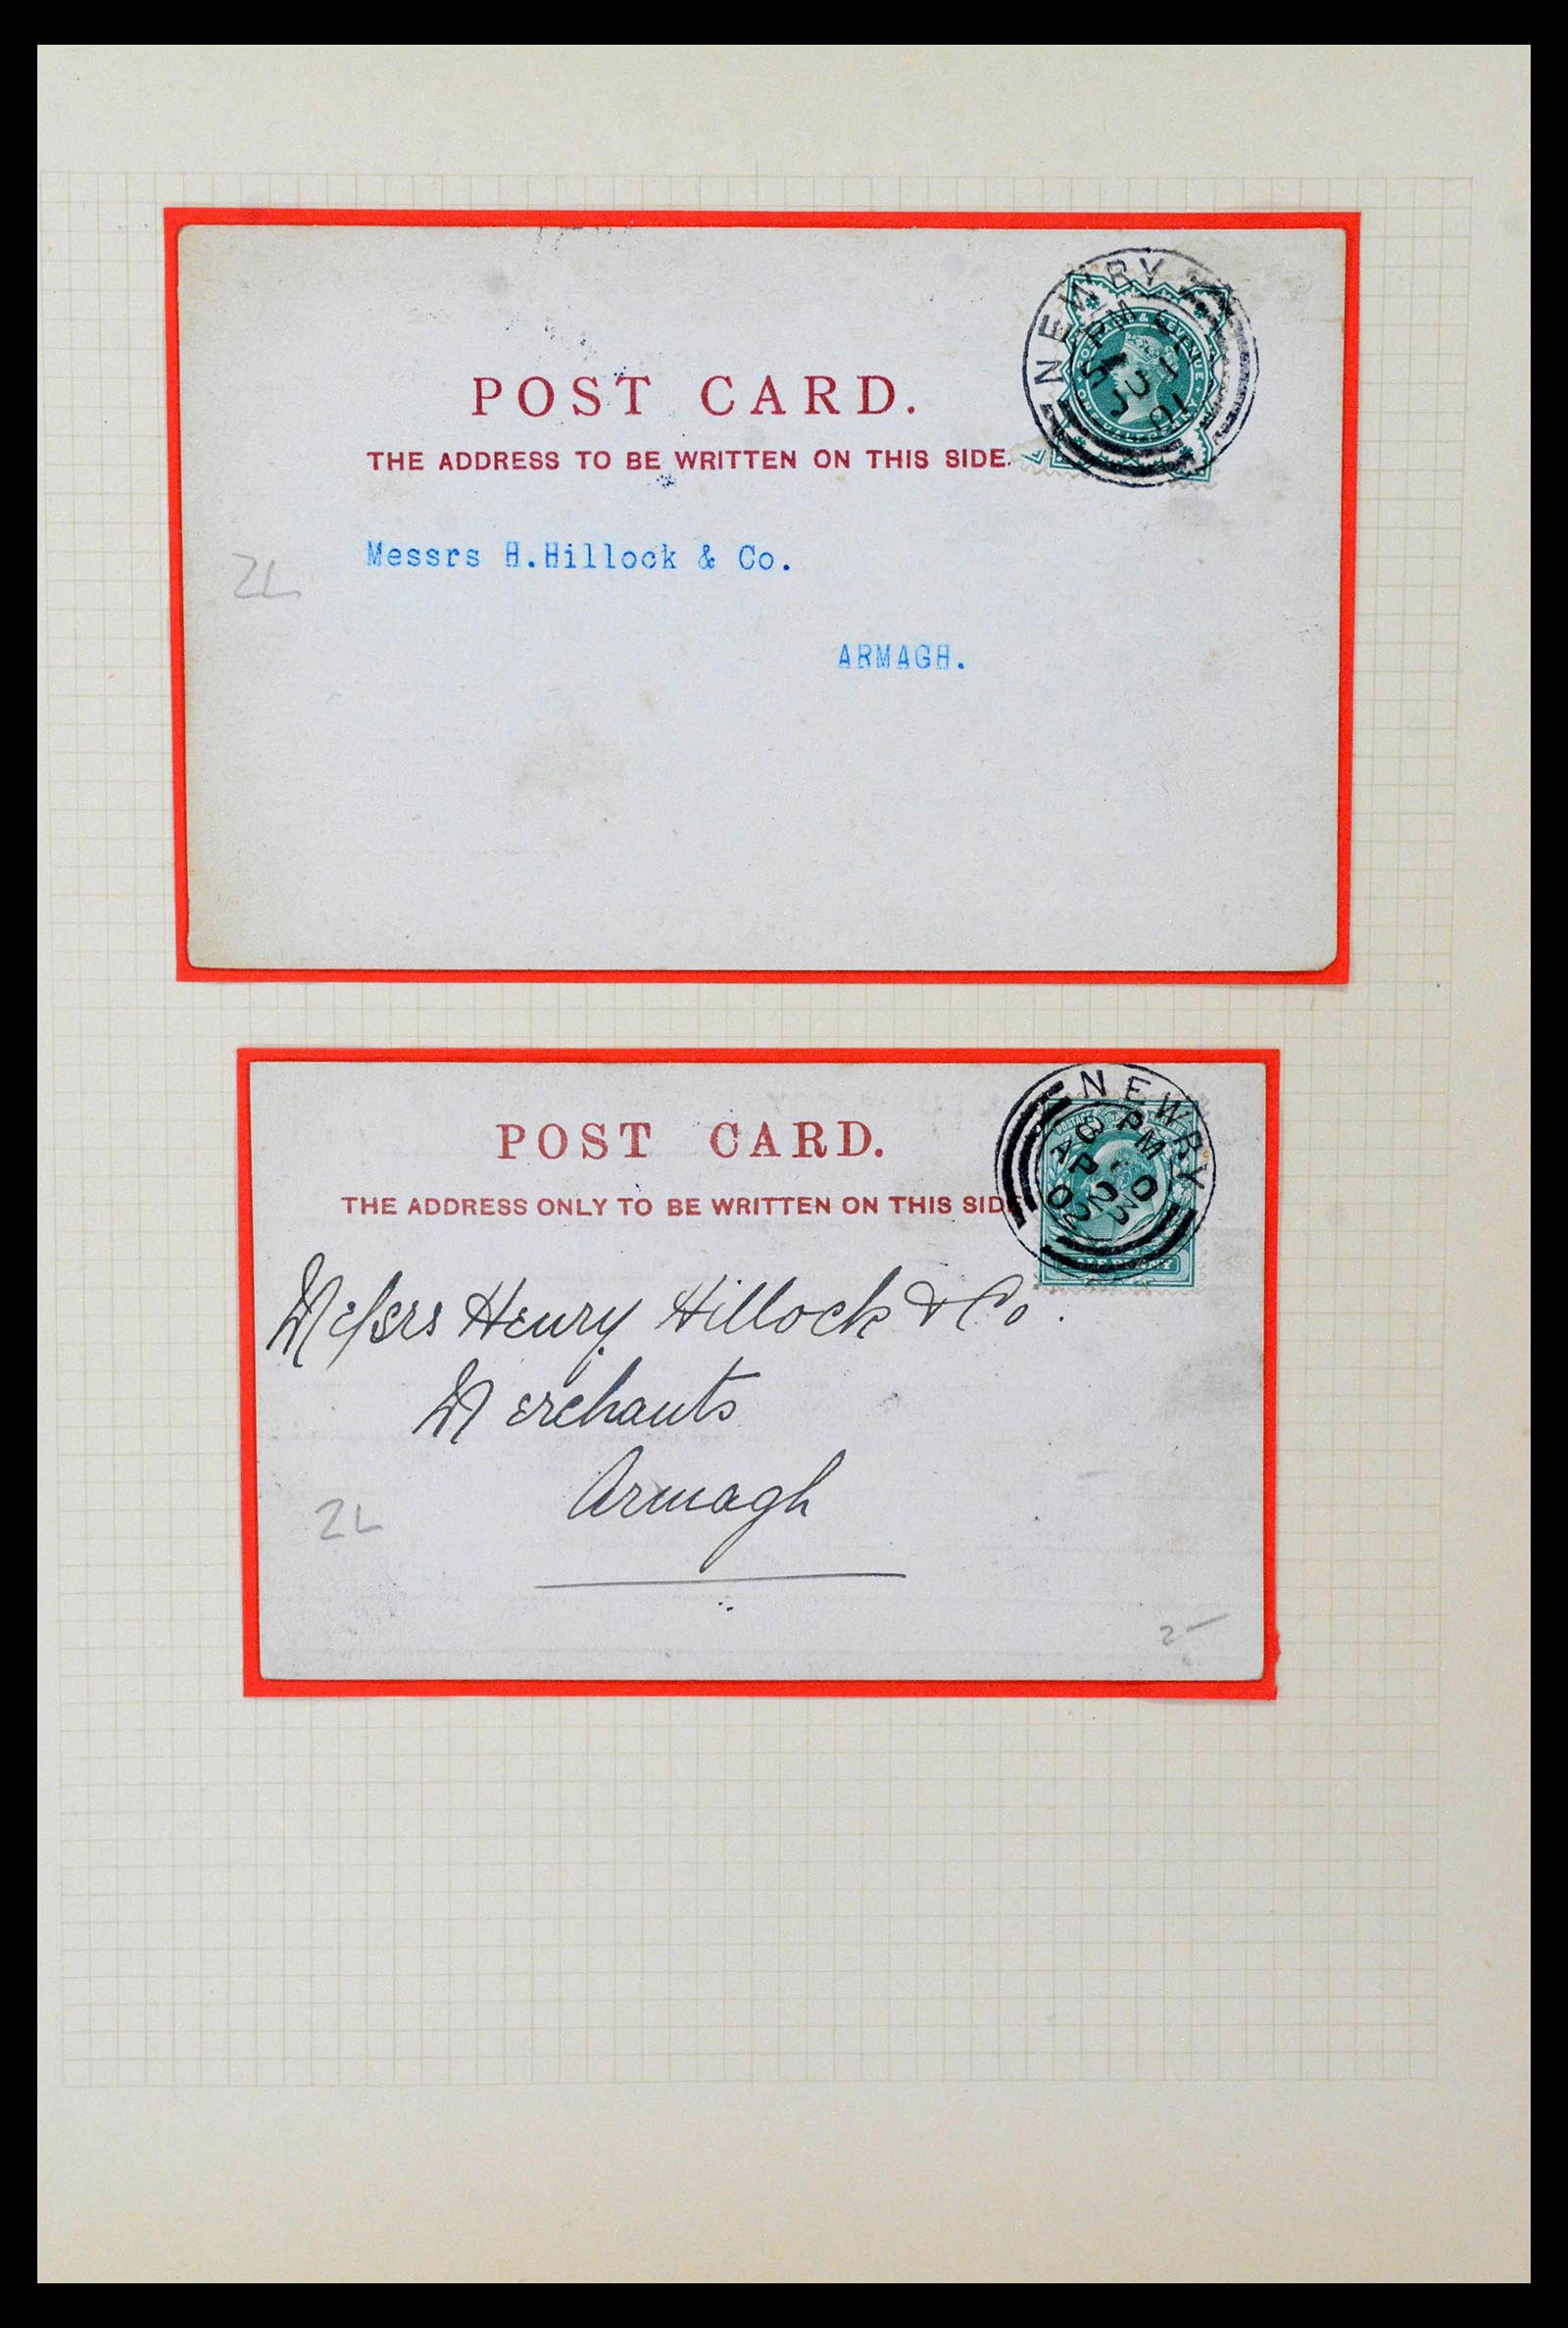 NEWRY
5 PM
JU 1
01
POSTAGE & REVENUE
POST CARD.
THE ADDRESS TO BE WRITTEN ON THIS SIDE.
Messrs H.Hillock & Co.
ZL
ARMAGH.
NEWRY
8 PM
AP 23
02
POST CARD.
THE ADDRESS ONLY TO BE WRITTEN ON THIS SIDE
Messrs Henry Hillock & Co.
Merchants
Armagh
ZL
2-